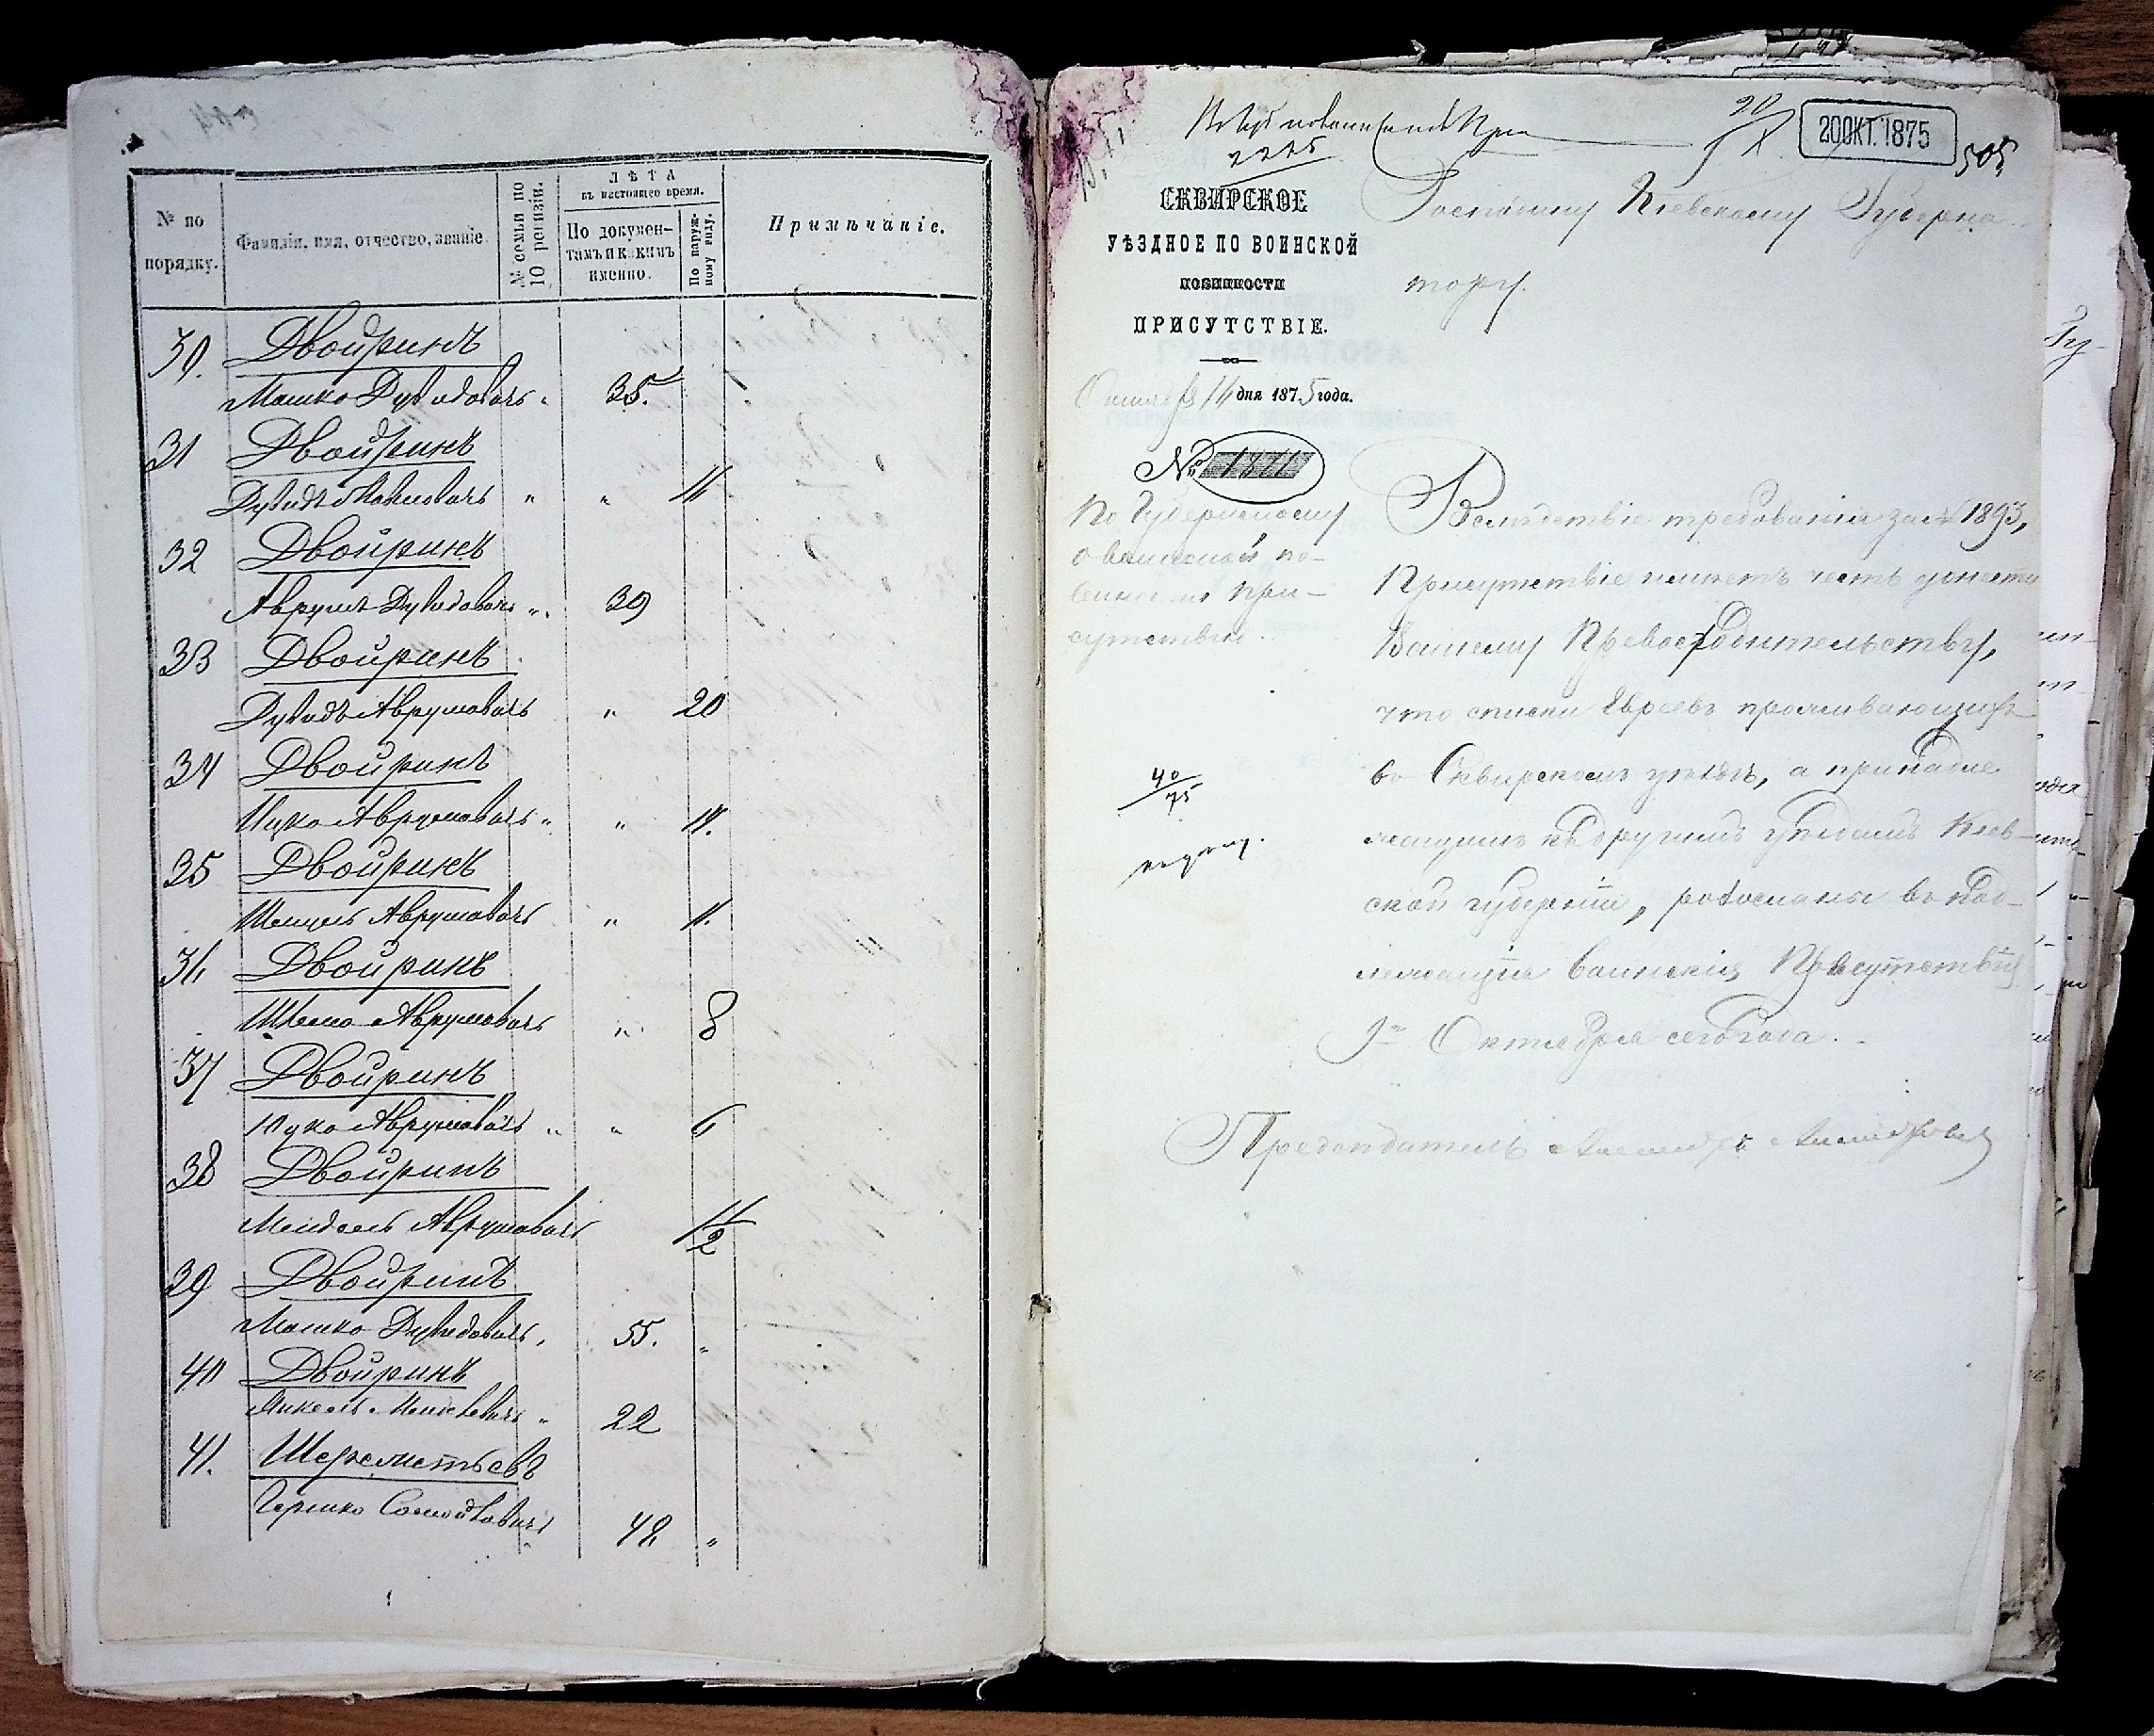 № по порядку.
Фамилія, имя, отчество, званіе
№ семьи по 10 ревизіи.
ЛѢТА
въ настоящее время.
По докумен-
тамъ и какимъ
именно.
По наруж-
ному виду.
Примѣчаніе.
30. Двойринъ
Мошко Дувидовичъ " 35.
31 Двойринъ
Дувидъ Мошковичъ " " 16
32 Двойринъ
Аврумъ Дувидовичъ " 39
33 Двойринъ
Дувидъ Аврумовичъ " 20
34 Двойринъ
Ицко Аврумовичъ " "
35 Двойринъ
Аврумовичъ "
36 Двойринъ
Аврумовичъ " 8
37 Двойринъ
Аврумовичъ " " 6
38 Двойринъ
Мендель Аврумовичъ
39 Двойринъ
Мошко Дувидовичъ, 55. "
40 Двойринъ
Янкель " 22
41. Шереметьевъ
Гершко 48 "
2225
20
X
20 ОКТ. 1875
505
СКВИРСКОЕ
УѢЗДНОЕ ПО ВОИНСКОЙ
ПОВИННОСТИ
ПРИСУТСТВІЕ.
Октября 16 дня 1875 года.
№ 1811
По Губернскому
о воинской по-
винности При-
сутствію.
40
75
Господину Кіевскому Губерна-
тору.
Вслѣдствіе требованія за № 1893,
Присутствіе имѣетъ честь донести
Вашему Превосходительству,
что списки Евреевъ проживающихъ
въ Сквирскомъ уѣздѣ, а принадле-
жащихъ къ другимъ уѣздамъ Кіев-
ской губерніи, разосланы въ над-
лежащія воинскія Присутствія
9го Октября сего года.
Предсѣдатель